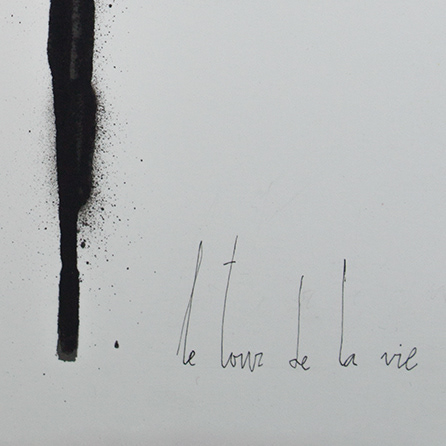 le tour de la vie